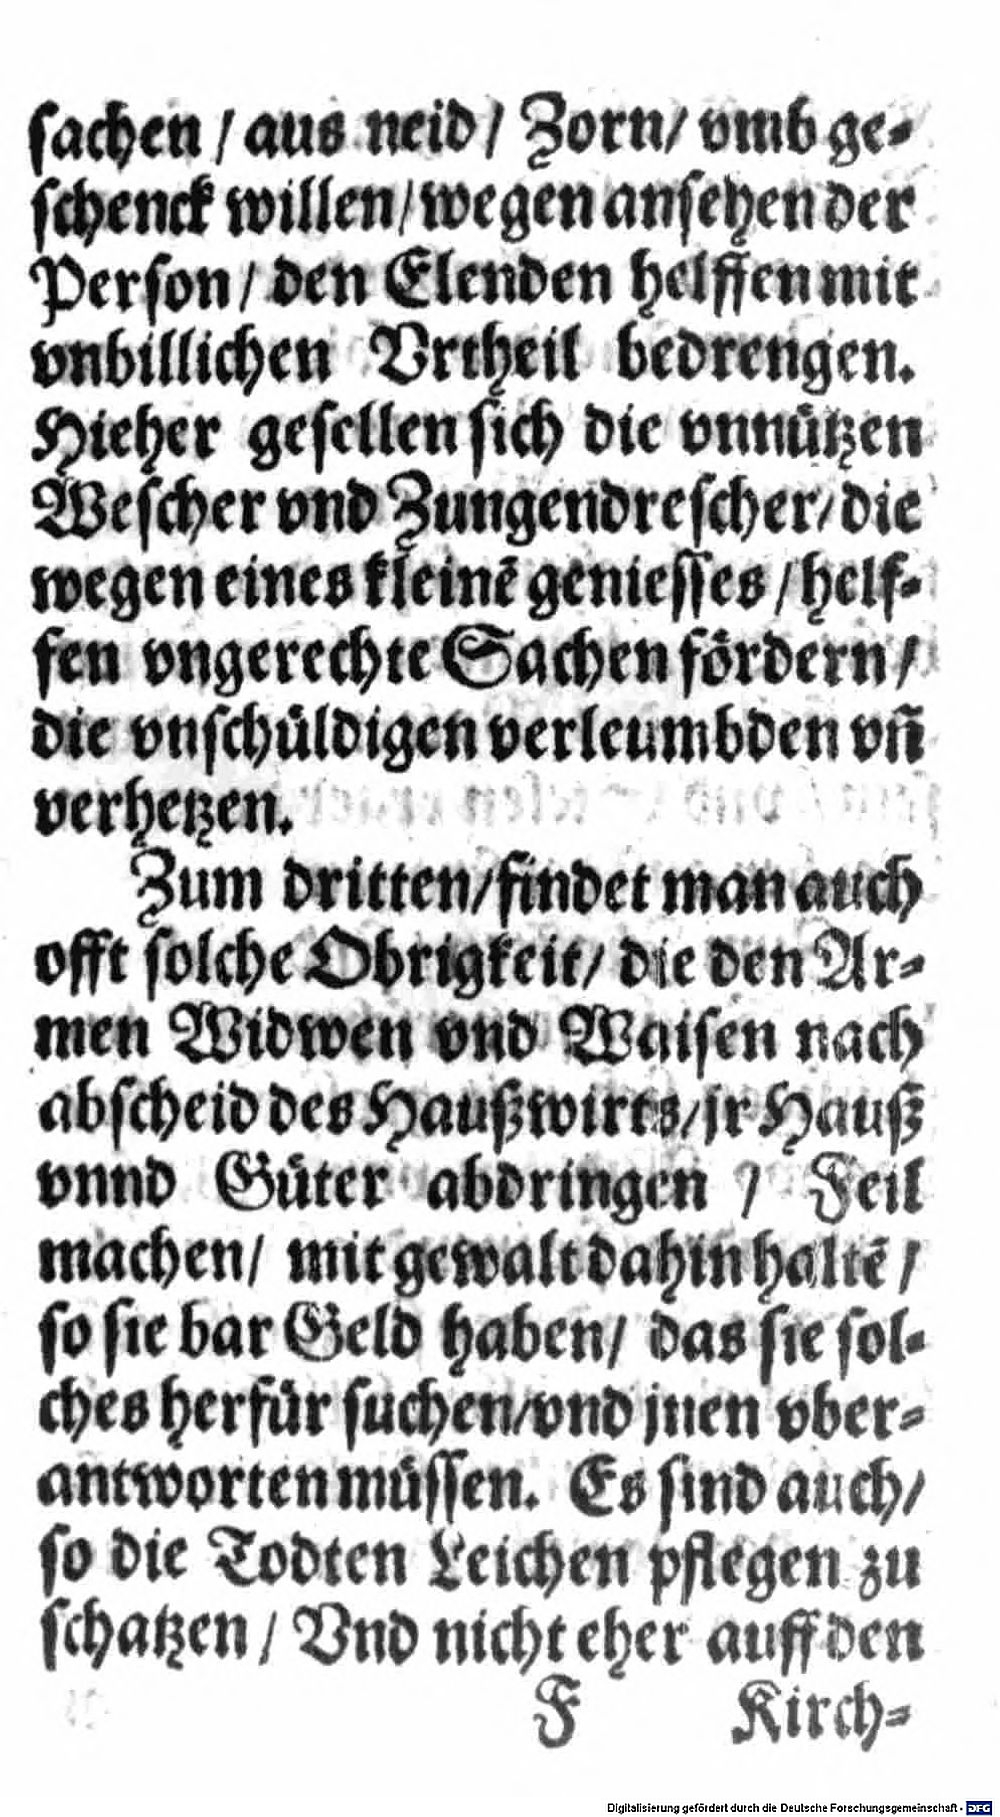 sachen / aus neid / Zorn / vmb ge-
schenck willen / wegen ansehen der
Person / den Elenden helffen mit
vnbillichen Vrtheil bedrengen.
Hieher gesellen sich die vnnützen
Wescher vnd Zungendrescher / die
wegen eines kleinē geniesses / helf-
fen vngerechte Sachen fördern /
die vnschüldigen verleumbden vñ
verhetzen.
Zum dritten / findet man auch
offt solche Obrigkeit / die den Ar-
men Widwen vnd Waisen nach
abscheid des Haußwirts / jr Hauß
vnnd Güter abdringen / Feil
machen / mit gewalt dahin haltē /
so sie bar Geld haben / das sie sol-
ches herfür suchen / vnd jnen vber-
antworten müssen. Es sind auch /
so die Todten Leichen pflegen zu
schatzen / Vnd nicht eher auff den
F Kirch-
Digitalisierung gefördert durch die Deutsche Forschungsgemeinschaft - DFG